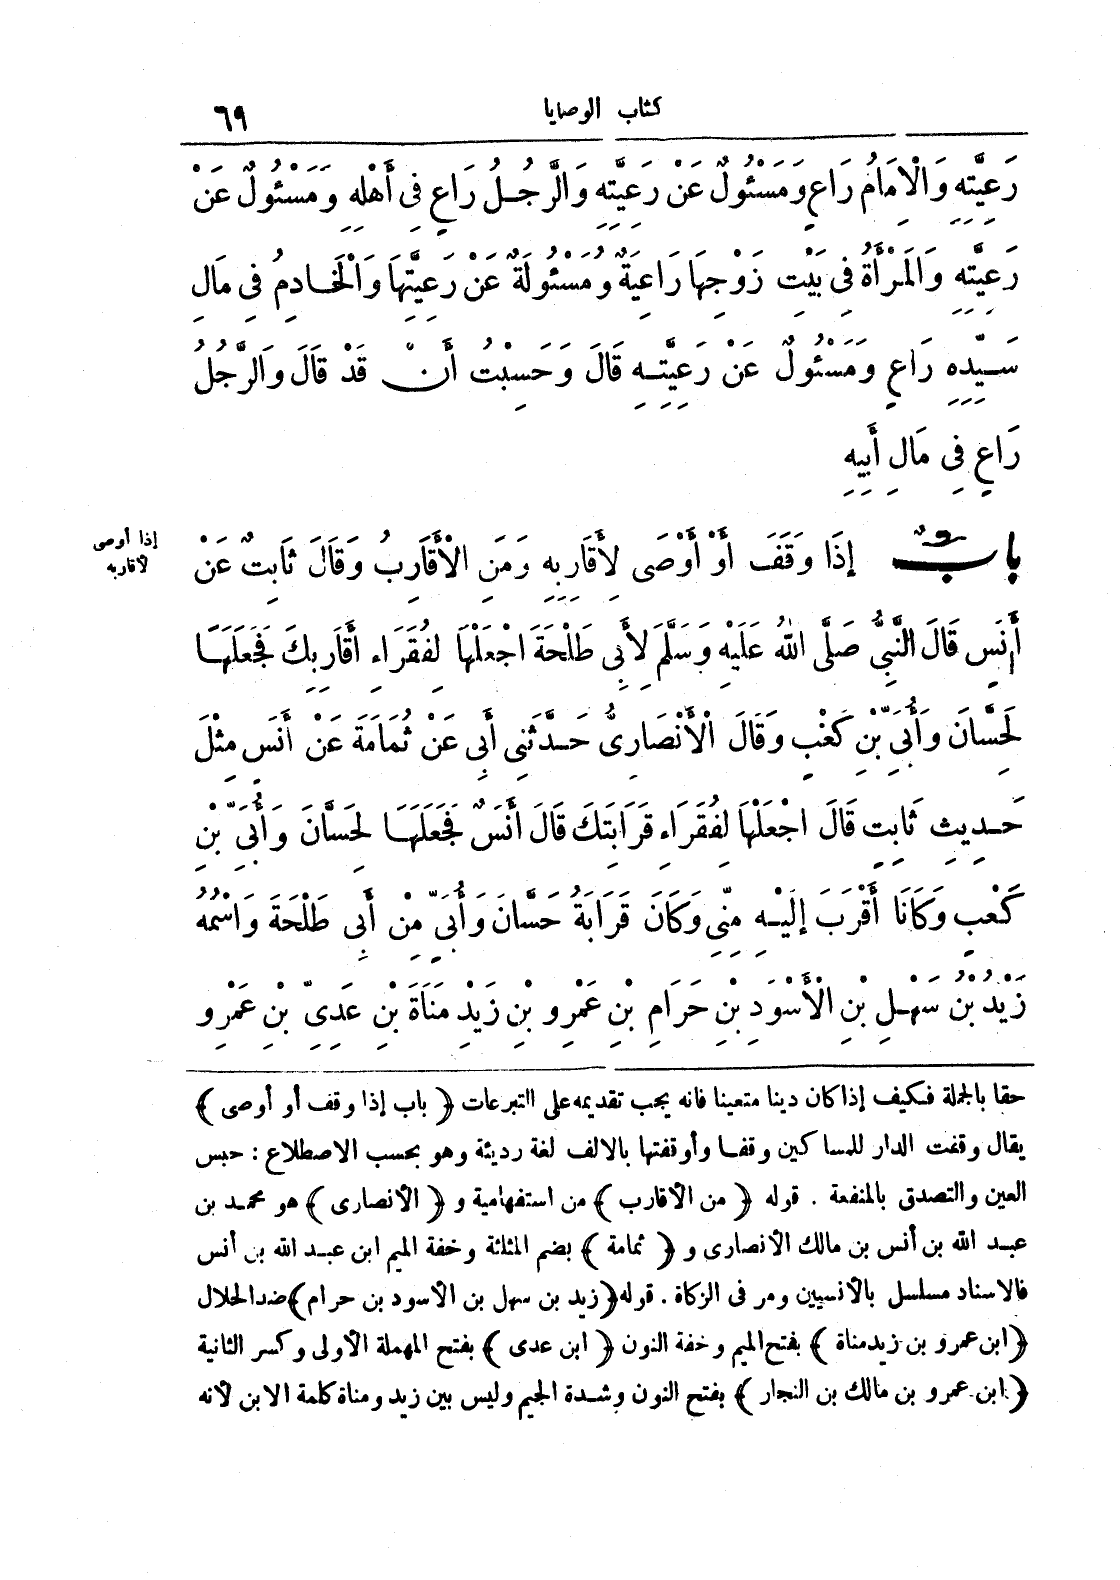 كتاب الوصايا ٦٩
رَعِيَّتِهِ وَالْإِمَامُ رَاعٍ وَمَسْئُولٌ عَنْ رَعِيَّتِهِ وَالرَّجُلُ رَاعٍ فِى أَهْلِهِ وَمَسْئُولٌ عَنْ
رَعِيَّتِهِ وَالْمَرْأَةُ فِى بَيْتِ زَوْجِهَا رَاعِيَةٌ وَمَسْئُولَةٌ عَنْ رَعِيَّتِهَا وَالْخَادِمُ فِى مَالِ
سَيِّدِهِ رَاعٍ وَمَسْئُولٌ عَنْ رَعِيَّتِهِ قَالَ وَحَسِبْتُ أَنْ قَدْ قَالَ وَالرَّجُلُ
رَاعٍ فِى مَالِ أَبِيهِ
بَابٌ إِذَا وَقَفَ أَوْ أَوْصَى لِأَقَارِبِهِ وَمَنِ الْأَقَارِبُ وَقَالَ ثَابِتٌ عَنْ
إذا أوصى
لأقاربه
أَنَسٍ قَالَ النَّبِىُّ صَلَّى اللهُ عَلَيْهِ وَسَلَّمَ لِأَبِى طَلْحَةَ اجْعَلْهَا لِفُقَرَاءِ أَقَارِبِكَ فَجَعَلَهَا
لِحَسَّانَ وَأُبَىِّ بْنِ كَعْبٍ وَقَالَ الْأَنْصَارِىُّ حَدَّثَنِى أَبِى عَنْ ثُمَامَةَ عَنْ أَنَسٍ مِثْلَ
حَدِيثِ ثَابِتٍ قَالَ اجْعَلْهَا لِفُقَرَاءِ قَرَابَتِكَ قَالَ أَنَسٌ فَجَعَلَهَا لِحَسَّانَ وَأُبَىِّ بْنِ
كَعْبٍ وَكَانَا أَقْرَبَ إِلَيْهِ مِنِّى وَكَانَ قَرَابَةُ حَسَّانَ وَأُبَىٍّ مِنْ أَبِى طَلْحَةَ وَاسْمُهُ
زَيْدُ بْنُ سَهْلِ بْنِ الْأَسْوَدِ بْنِ حَرَامِ بْنِ عَمْرِو بْنِ زَيْدِ مَنَاةَ بْنِ عَدِىِّ بْنِ عَمْرِو
حقا بالجملة فكيف إذا كان دينا متعينا فانه يجب تقديمه على التبرعات ﴿ باب إذا وقف أو أوصى ﴾
يقال وقفت الدار للمساكين وقفا وأوقفتها بالالف لغة رديئة وهو بحسب الاصطلاع : حبس
العين والتصدق بالمنفعة . قوله ﴿ من الأقارب ﴾ من استفهامية و ﴿ الأنصارى ﴾ هو محمد بن
عبد الله بن أنس بن مالك الأنصارى و ﴿ ثمامة ﴾ بضم المثلثة وخفة الميم ابن عبد الله بن أنس
فالاسناد مسلسل بالأنسيين ومر فى الزكاة . قوله ﴿ زيد بن سهل بن الأسود بن حرام ﴾ ضد الحلال
﴿ ابن عمرو بن زيد مناة ﴾ بفتح الميم وخفة النون ﴿ ابن عدى ﴾ بفتح المهملة الأولى وكسر الثانية
﴿ ابن عمرو بن مالك بن النجار ﴾ بفتح النون وشدة الجيم وليس بين زيد ومناة كلمة الابن لأنه